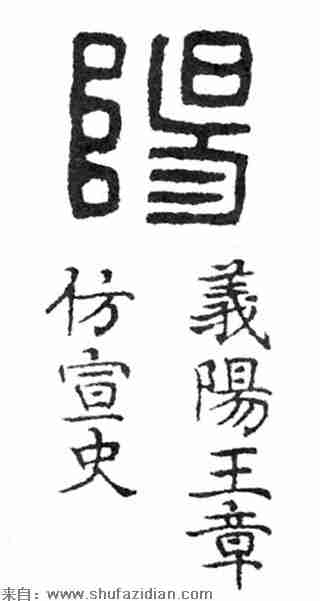 陽
義陽王章
仿宣史
来自：www.shufazidian.com